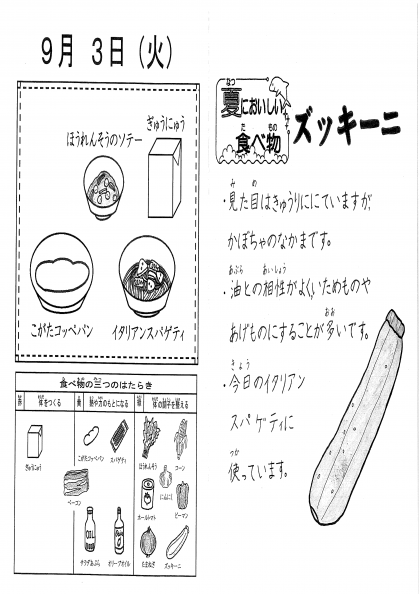 9月 3日（火）
ぎゅうにゅう
ほうれんそうのソテー
こがたコッペパン
イタリアンスパゲティ
食べ物の三つのはたらき
赤 体をつくる
黄 熱や力のもとになる
緑 体の調子を整える
ぎゅうにゅう
こがたコッペパン
スパゲティ
ベーコン
サラダあぶら
オリーブオイル
ほうれんそう
コーン
にんにく
ホールトマト
ピーマン
たまねぎ
ズッキーニ
夏においしい
食べ物
ズッキーニ
・見た目はきゅうりににていますが、
かぼちゃのなかまです。
・油との相性がよく、いためものや
あげものにすることが多いです。
・今日のイタリアン
スパゲティに
使っています。